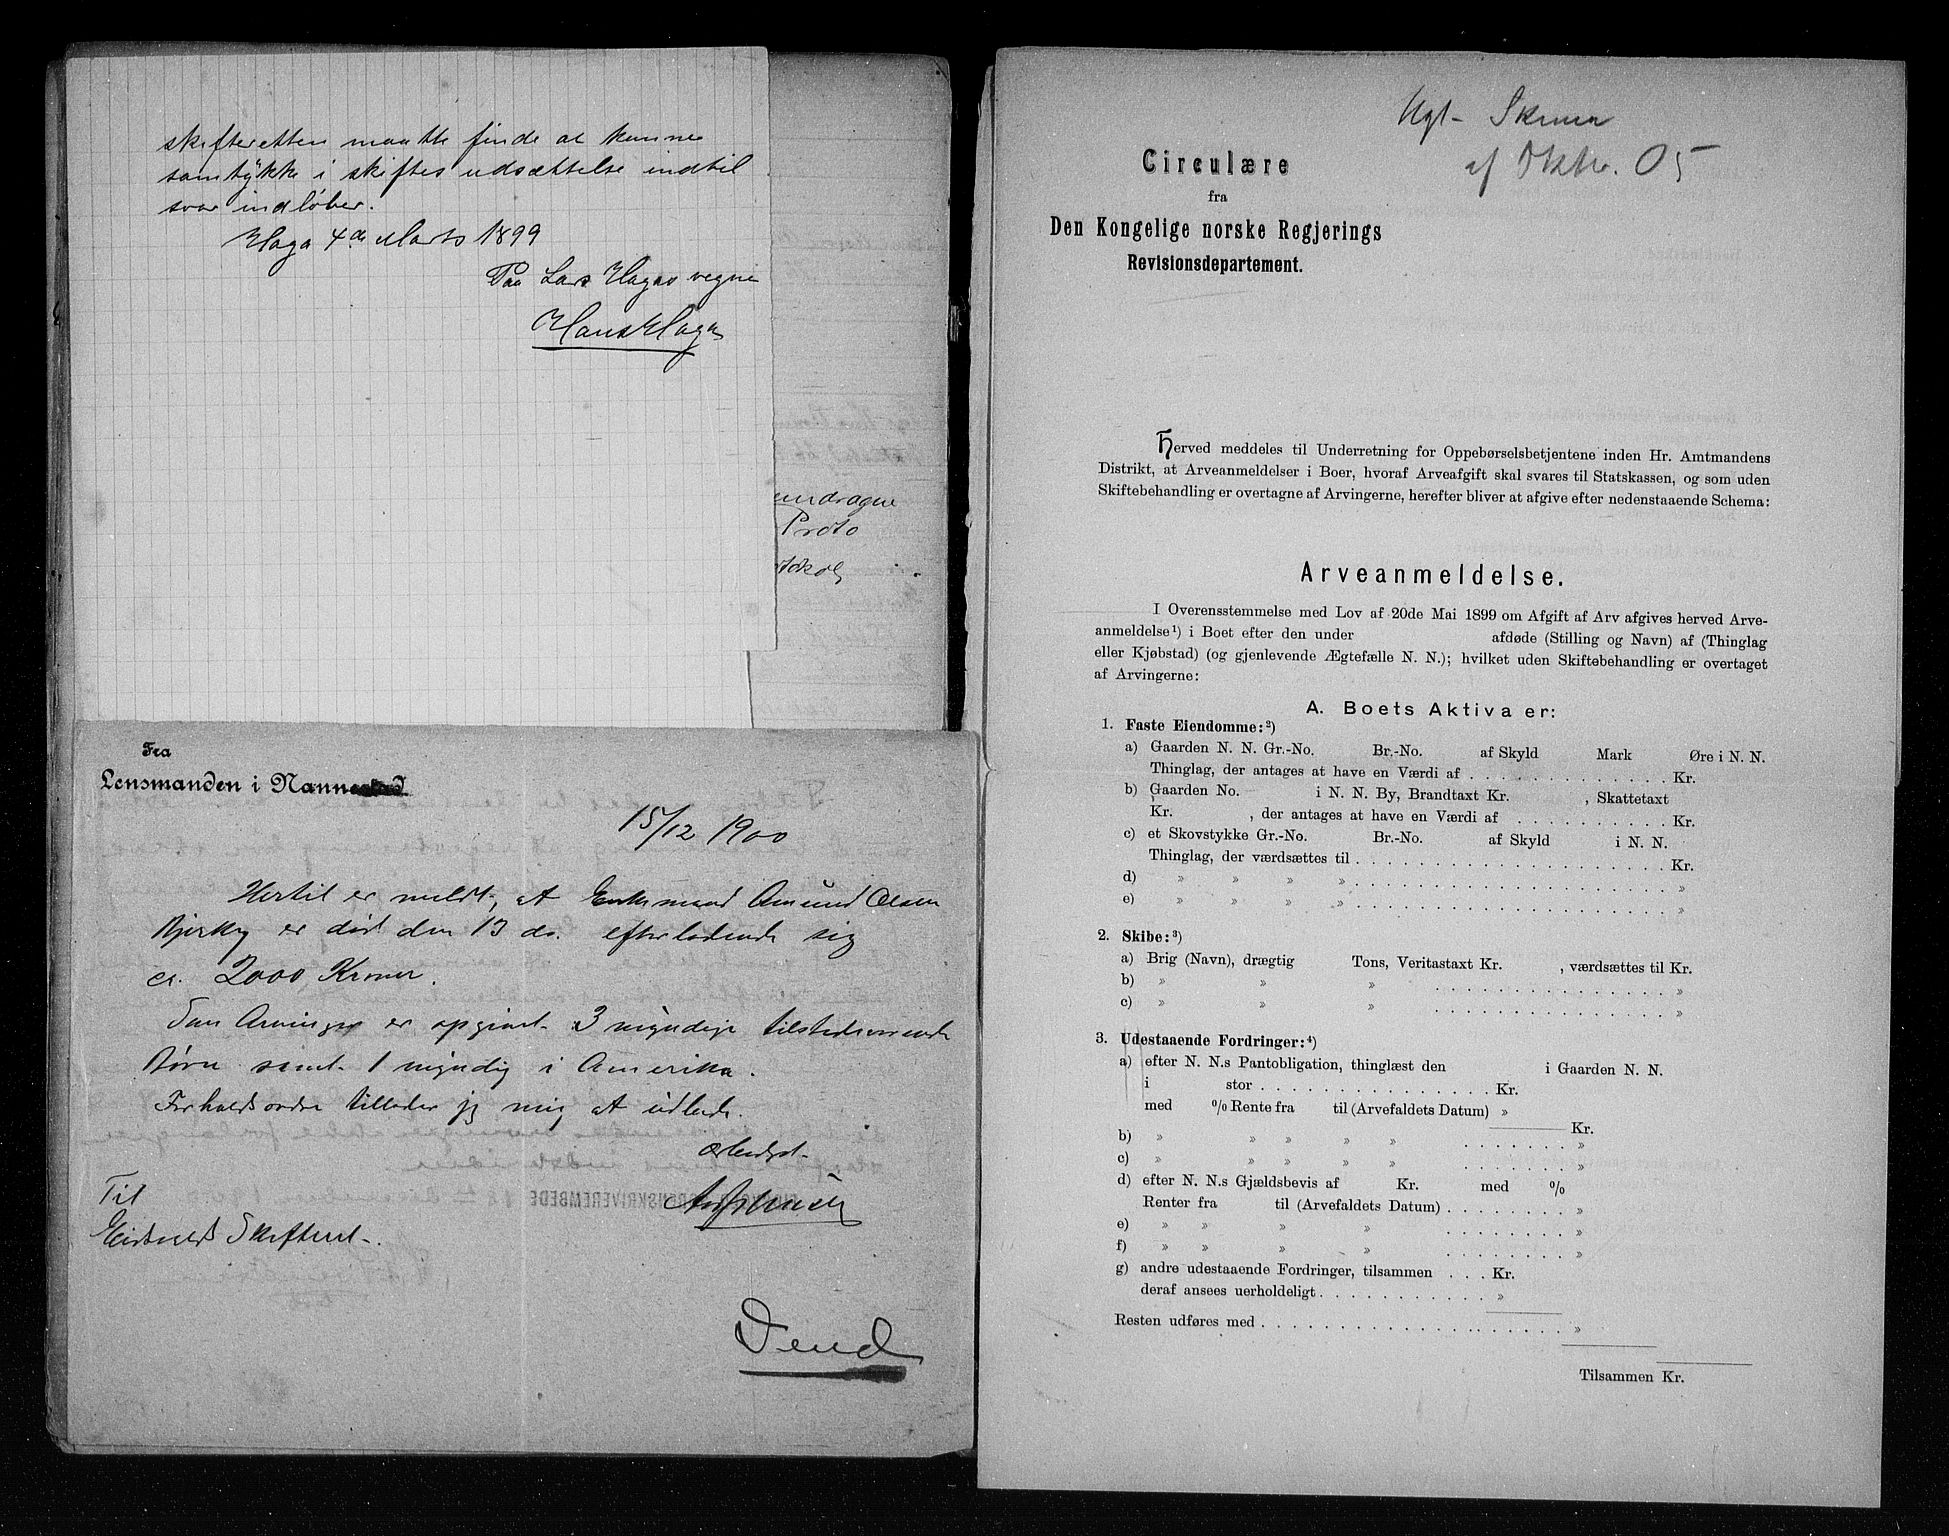 skifteretten maatte finde at kunne
samtykke i skiftes udsættelse indtil
svar indløber.
Haga 4de Marts 1899
Paa Lars Hagas vegne
Hans Haga
Proto
Fra
Lensmanden i Nannestad
15/12 1900
Hertil er meldt, at Enkemand Amund Olsen
Bjerky er død den 13 ds. efterladende sig
ca. 2000 Kroner.
Som Arvinger er opgivet 3 myndige tilstedeværende
Børn samt 1 myndig i Amerika.
Forholdsordre tillader jeg mig at udbede.
Ærbødigst
Til
Eidsvolds Skifteret.
SORENSKRIVEREMBEDE
Vend
af Oktbr. 05
Circulære
fra
Den Kongelige norske Regjerings
Revisionsdepartement.
Herved meddeles til Underretning for Oppebørselsbetjentene inden Hr. Amtmandens
Distrikt, at Arveanmeldelser i Boer, hvoraf Arveafgift skal svares til Statskassen, og som uden
Skiftebehandling er overtagne af Arvingerne, herefter bliver at afgive efter nedenstaaende Schema:
Arveanmeldelse.
I Overensstemmelse med Lov af 20de Mai 1899 om Afgift af Arv afgives herved Arve-
anmeldelse¹) i Boet efter den under afdøde (Stilling og Navn) af (Thinglag
eller Kjøbstad) (og gjenlevende Ægtefælle N. N.); hvilket uden Skiftebehandling er overtaget
af Arvingerne:
A. Boets Aktiva er:
1. Faste Eiendomme:²)
a) Gaarden N. N. Gr.-No. Br.-No. af Skyld Mark Øre i N. N.
Thinglag, der antages at have en Værdi af . . . . . . . . . . . . Kr.
b) Gaarden No. i N. N. By, Brandtaxt Kr. , Skattetaxt
Kr. , der antages at have en Værdi af . . . . . . . . . . Kr.
c) et Skovstykke Gr.-No. Br.-No. af Skyld i N. N.
Thinglag, der værdsættes til . . . . . . . . . . . . . . . . . . Kr.
d) » » » » . . . . . . . . . . . . . . . . . . »
e) » » » » . . . . . . . . . . . . . . . . . . »
2. Skibe:³)
a) Brig (Navn), drægtig Tons, Veritastaxt Kr. , værdsættes til Kr.
b) » » » . . . . . . . . . . . . . »
c) » » » . . . . . . . . . . . . . »
3. Udestaaende Fordringer:⁴)
a) efter N. N.s Pantobligation, thinglæst den i Gaarden N. N.
i stor . . . . . . . . . . . . . Kr.
med % Rente fra til (Arvefaldets Datum) »
Kr.
b) » » » » » . . . . . . . »
c) » » » » » . . . . . . . »
d) efter N. N.s Gjældsbevis af Kr. med %
Renter fra til (Arvefaldets Datum) . . . . . . . . »
e) » » » » . . . . . . . . »
f) » » » » . . . . . . . . »
g) andre udestaaende Fordringer, tilsammen . . . Kr.
deraf ansees uerholdeligt . . . . . . . . . . . »
Resten udføres med . . . . . . . . . . . . . . . . . »
Tilsammen Kr.